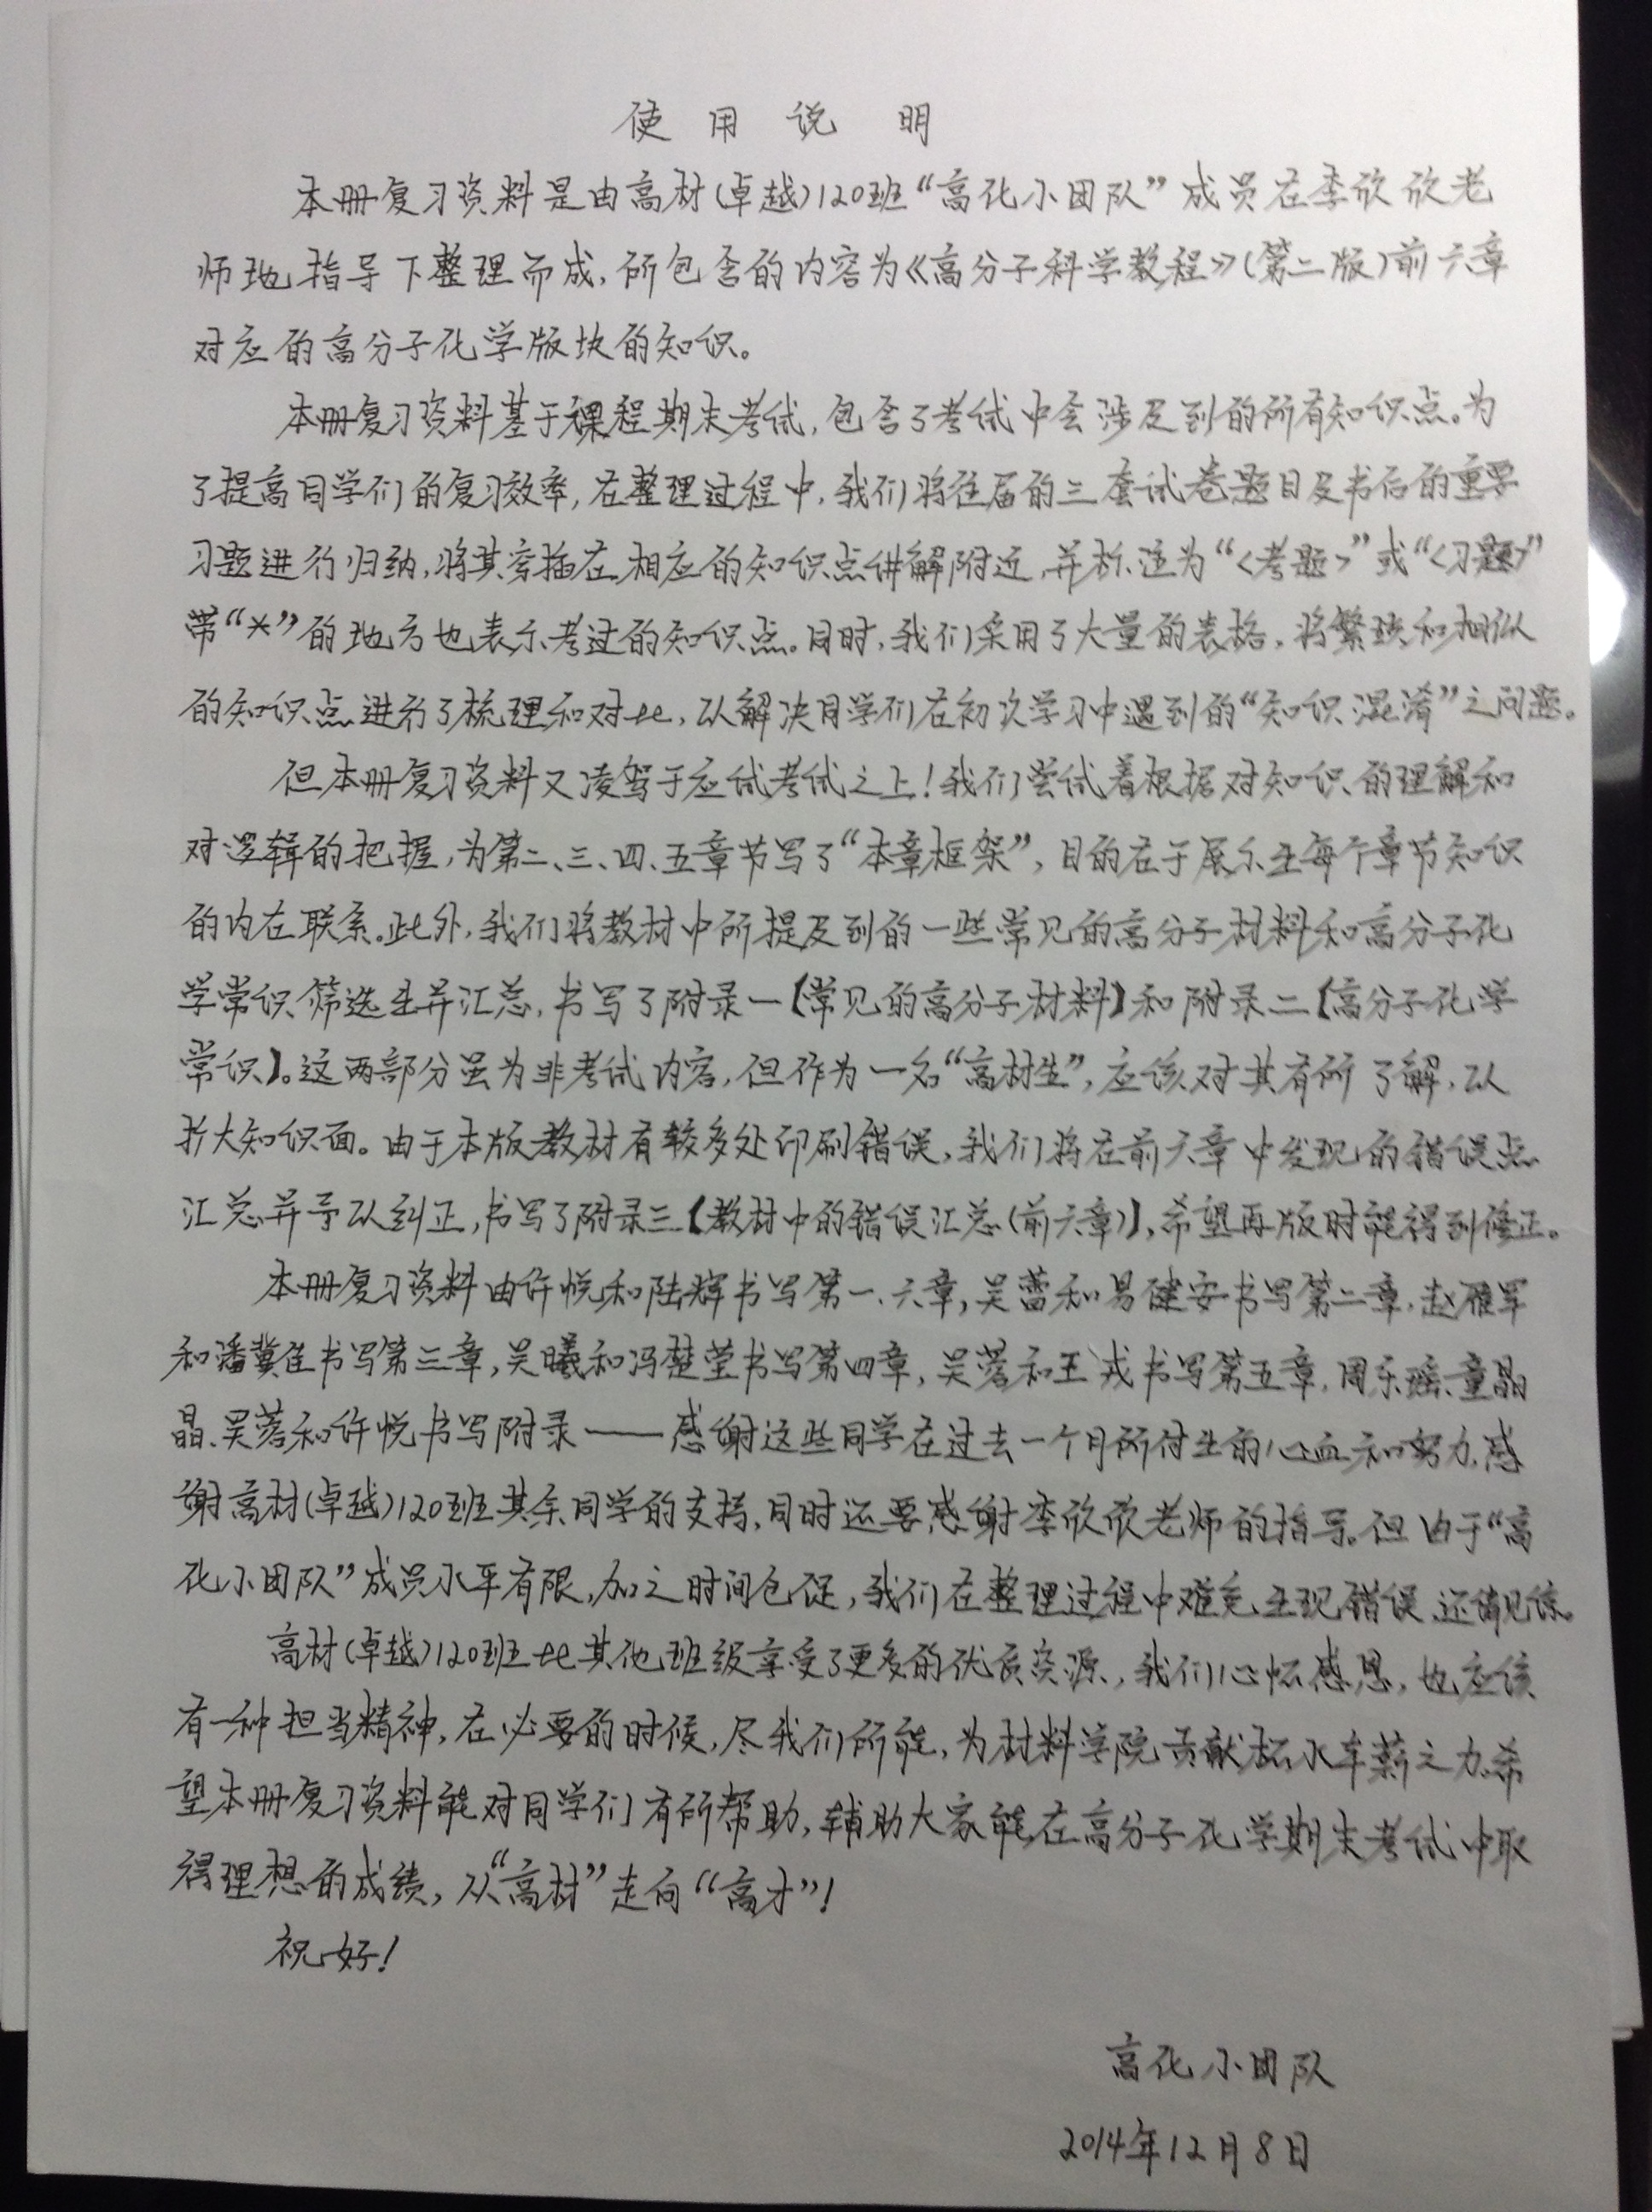 使用说明
本册复习资料是由高材(卓越)120班“高化小团队”成员在李欣欣老
师地指导下整理而成,所包含的内容为《高分子科学教程》(第二版)前六章
对应的高分子化学版块的知识。
本册复习资料基于课程期末考试,包含了考试中会涉及到的所有知识点。为
了提高同学们的复习效率,在整理过程中,我们将往届的三套试卷题目及书后的重要
习题进行归纳,将其穿插在相应的知识点讲解附近,并标注为“<考题>”或“<习题>”
带“*”的地方也表示考过的知识点。同时,我们采用了大量的表格,将繁琐和相似
的知识点进行了梳理和对比,以解决同学们在初次学习中遇到的“知识混淆”之问题。
但本册复习资料又凌驾于应试考试之上!我们尝试着根据对知识的理解和
对逻辑的把握,为第二、三、四、五章节写了“本章框架”,目的在于展示出每个章节知识
的内在联系。此外,我们将教材中所提及到的一些常见的高分子材料和高分子化
学常识筛选出并汇总,书写了附录一【常见的高分子材料】和附录二【高分子化学
常识】。这两部分虽为非考试内容,但作为一名“高材生”,应该对其有所了解,以
扩大知识面。由于本版教材有较多处印刷错误,我们将在前六章中发现的错误点
汇总并予以纠正,书写了附录三【教材中的错误汇总(前六章)】,希望再版时能得到修正。
本册复习资料由许悦和陆辉书写第一、六章,吴蕾和易健安书写第二章,赵雁军
和潘冀佳书写第三章,吴曦和冯楚莹书写第四章,吴蓉和王戎书写第五章,周乐瑶、童晶
晶、吴蓉和许悦书写附录——感谢这些同学在过去一个月所付出的心血和努力,感
谢高材(卓越)120班其余同学的支持,同时还要感谢李欣欣老师的指导。但由于“高
化小团队”成员水平有限,加之时间仓促,我们在整理过程中难免出现错误,还请见谅。
高材(卓越)120班比其他班级享受了更多的优质资源,我们心怀感恩,也应该
有一种担当精神,在必要的时候,尽我们所能,为材料学院贡献杯水车薪之力。希
望本册复习资料能对同学们有所帮助,辅助大家能在高分子化学期末考试中取
得理想的成绩,从“高材”走向“高才”!
祝好!
高化小团队
2014年12月8日